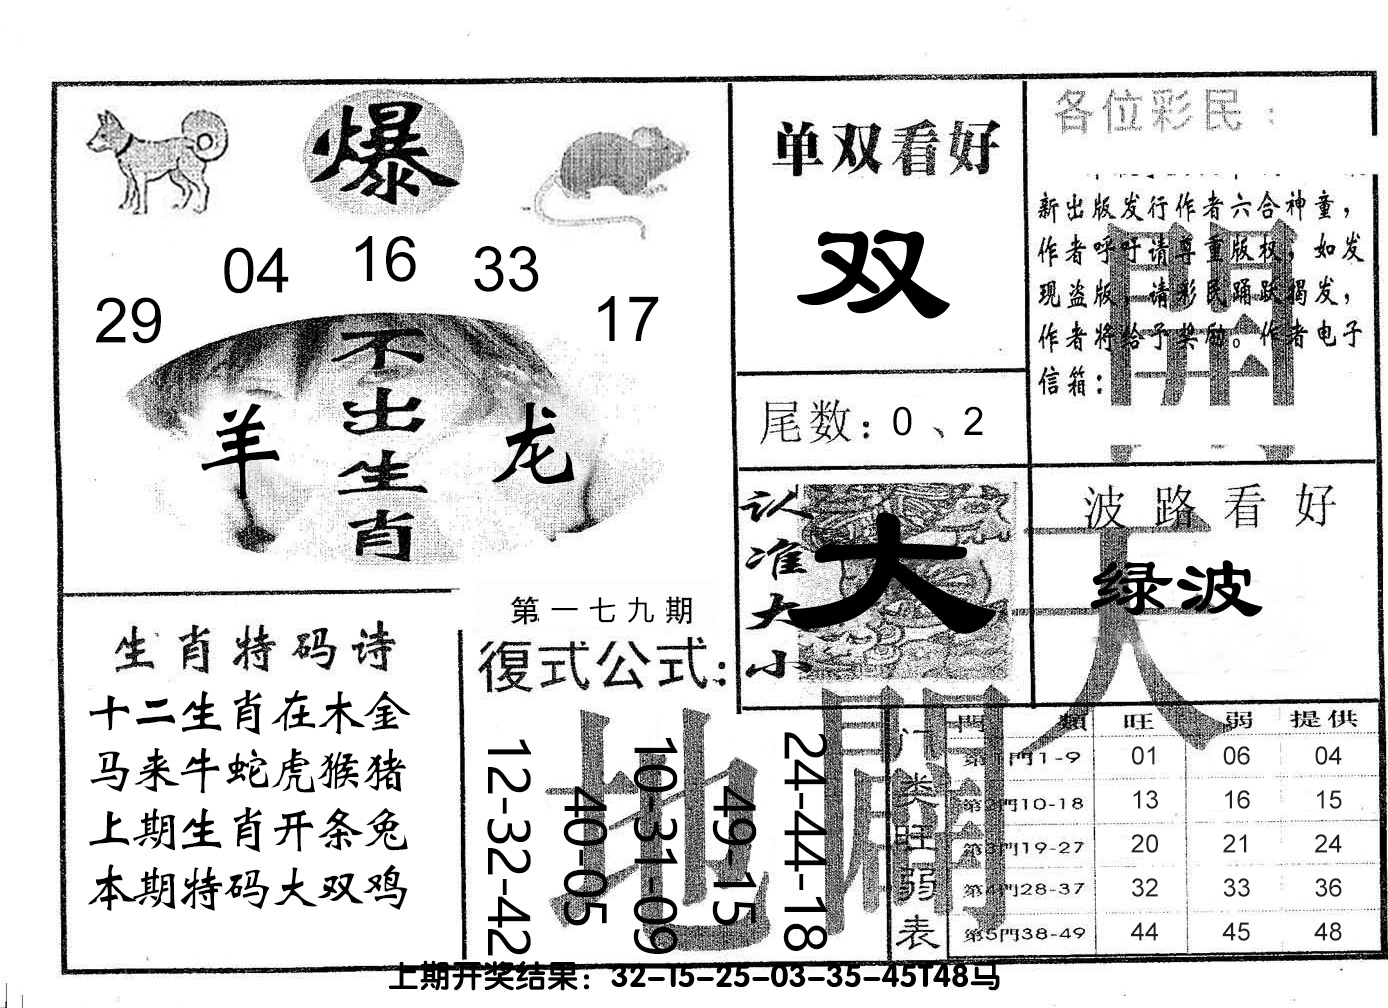 爆
29
04
16
33
17
不出生肖
羊
龙
单双看好
双
尾数：0、2
各位彩民：
新出版发行作者六合神童，
作者呼吁请尊重版权，如发
现盗版，请彩民踊跃揭发，
作者将给予奖励。作者电子
信箱：
認准大小
大
波路看好
绿波
生肖特码诗
十二生肖在木金
马来牛蛇虎猴猪
上期生肖开条兔
本期特码大双鸡
第一七九期
復式公式：
12-32-42
40-05
10-31-09
49-15
24-44-18
天
地
門类旺弱表
門類 旺 弱 提供
第1門1-9 01 06 04
第2門10-18 13 16 15
第3門19-27 20 21 24
第4門28-37 32 33 36
第5門38-49 44 45 48
上期开奖结果：32-15-25-03-35-45T48马